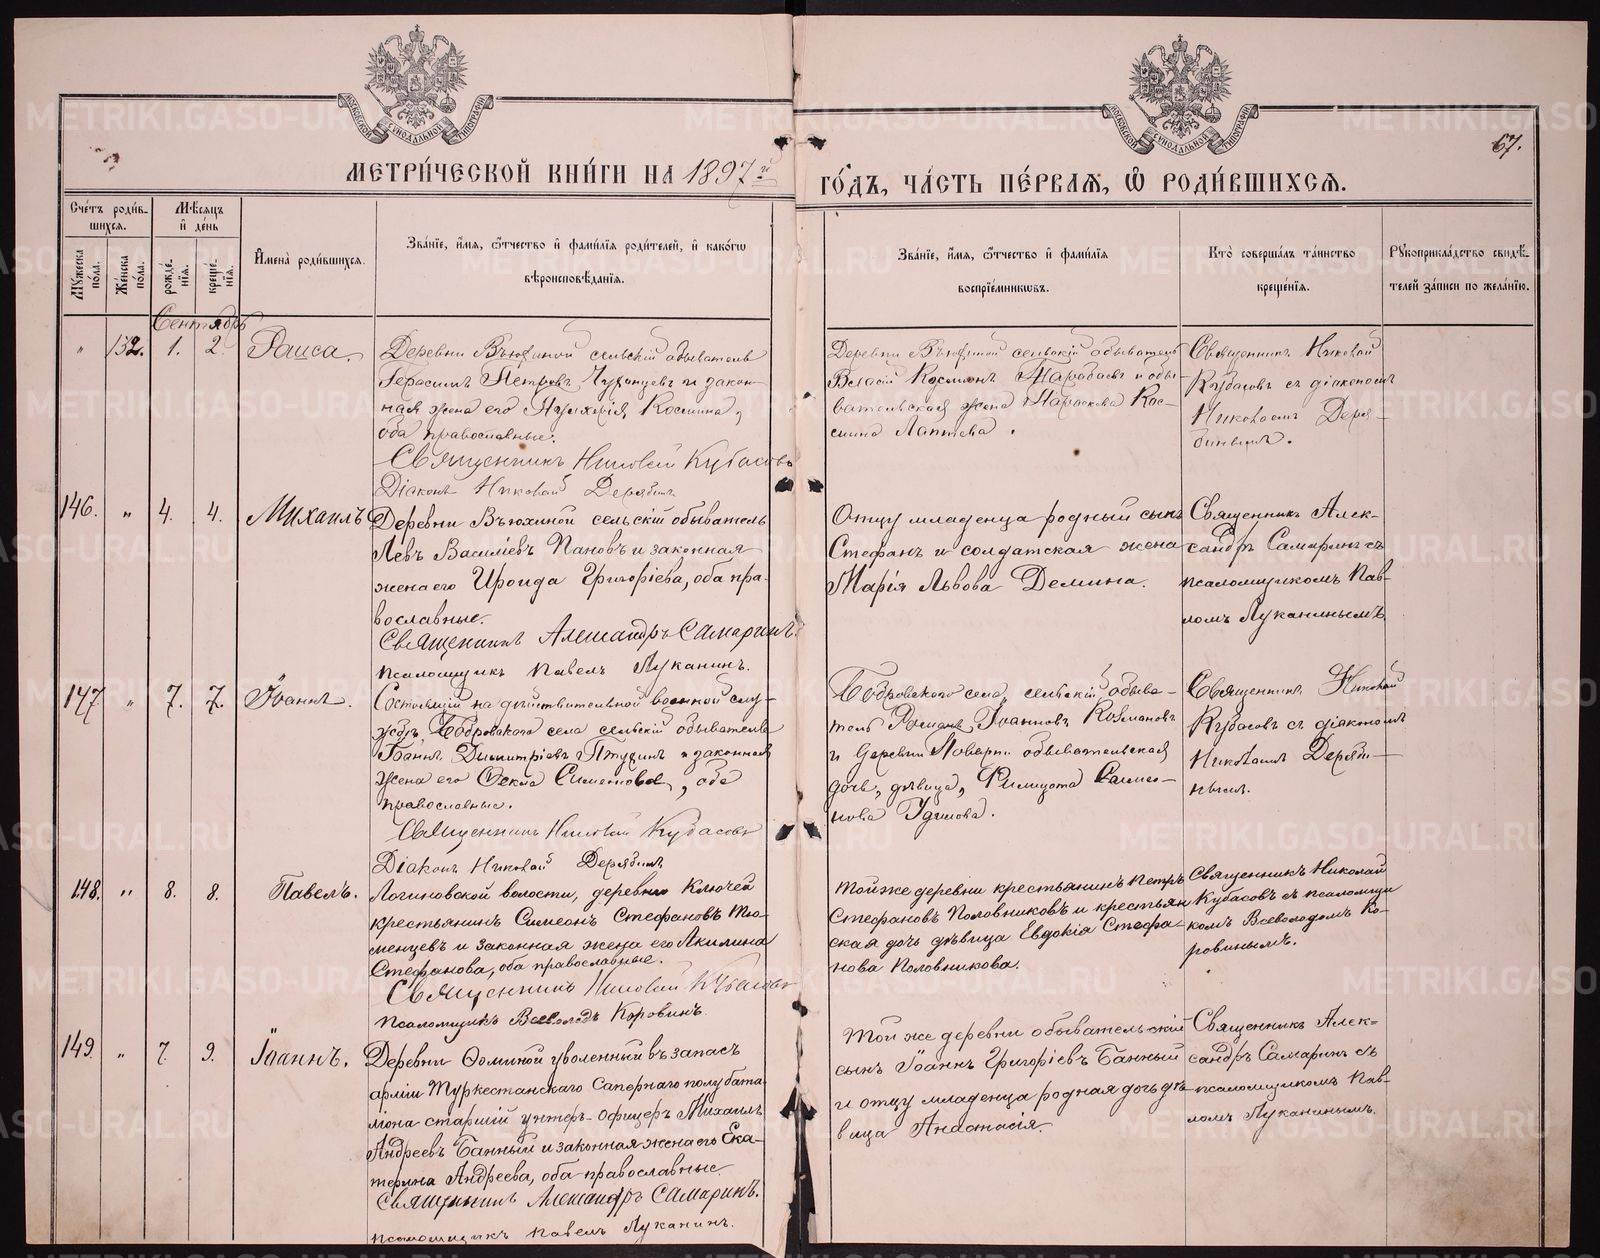 МЕТРИ́ЧЕСКОЙ КНИ́ГИ НА 1897 й
ГО́ДЪ, ЧА́СТЬ ПЕ́РВАЯ, Ѡ РОДИ́ВШИХСЯ.
67.
Сче́тъ роди́в-
шихся.
Мꙋжеска по́ла.
Же́нска по́ла.
Мѣ́сяцъ
и҆ де́нь
рожде́-
нїѧ.
креще́-
нїѧ.
И҆мена̀ роди́вшихся.
Зва́нїе, и҆́мѧ, ѻ҆́тчество и҆ фами́лїѧ роди́телей, и҆ како́гѡ
вѣроисповѣ́данїѧ.
Зва́нїе, и҆́мѧ, ѻ҆́тчество и҆ фами́лїѧ
воспрїе́мникѡвъ.
Кто̀ соверша́лъ та́инство
креще́нїѧ.
Рꙋкоприкла́дство свидѣ́-
телей за́писи по жела́нїю.
Сентябрь
„ 132. 1. 2. Раиса.
Деревни Вьюхиной сельскій обыватель
Герасимъ Петровъ и закон-
ная жена его Космина,
оба православные.
Священникъ Николай Кубасовъ
Діаконъ Николай Дерябинъ
Деревни Вьюхиной сельскій обыватель
Власій Косминъ и обы-
вательская жена Параскева Кос-
мина Лаптева.
Священникъ Николай
Кубасовъ съ діакономъ
Николаемъ Деря-
бинымъ.
146. „ 4. 4. Михаилъ
Деревни Вьюхиной сельскій обыватель
Левъ Василіевъ Пановъ и законная
жена его Ироида Григоріева, оба пра-
вославные.
Священникъ Александръ Самаринъ.
Псаломщикъ Павелъ Луканинъ.
Отцу младенца родный сынъ
Стефанъ и солдатская жена
Марія Львова Демина.
Священникъ Алек-
сандръ Самаринъ съ
псаломщикомъ Пав-
ломъ Луканинымъ.
147 „ 7. 7. Іоаннъ.
Состоящій на дѣйствительной военной слу-
жбѣ, Бобровскаго села сельскій обыватель
Іоаннъ Димитріевъ Птухинъ и законная
жена его Ѳекла Симеонова, оба
православные.
Священникъ Николай Кубасовъ
Діаконъ Николай Дерябинъ
Бобровскаго села, сельскій обыва-
тель Романъ Іоанновъ
и деревни обывательская
дочь, дѣвица,
нова
Священникъ Николай
Кубасовъ съ діакономъ
Николаемъ Деряби-
нымъ.
148. „ 8. 8. Павелъ.
Логиновской волости, деревни Ключей
крестьянинъ Симеонъ Стефановъ Тю-
менцевъ и законная жена его Акилина
Стефанова, оба православные.
Священникъ Николай Кубасовъ
Псаломщикъ Всеволодъ Коровинъ.
Той же деревни крестьянинъ Петръ
Стефановъ Половниковъ и крестьян
ская дочь дѣвица Евдокія Стефа-
нова Половникова.
Священникъ Николай
Кубасовъ съ псаломщи
комъ Всеволодомъ Ко-
ровинымъ.
149. „ 7 9. Іоаннъ.
Деревни Ѳоминой уволенный въ запасъ
арміи Туркестанскаго Сапернаго полубата-
ліона старшій унтеръ-офицеръ Михаилъ
Андреевъ Банный и законная жена его Ека-
терина Андреева, оба православные
Священникъ Александръ Самаринъ.
Псаломщикъ Павелъ Луканинъ.
Той же деревни обывательскій
сынъ Іоаннъ Григоріевъ Банный
и отцу младенца родная дочь дѣ-
вица Анастасія.
Священникъ Алек-
сандръ Самаринъ съ
псаломщикомъ Пав-
ломъ Луканинымъ.